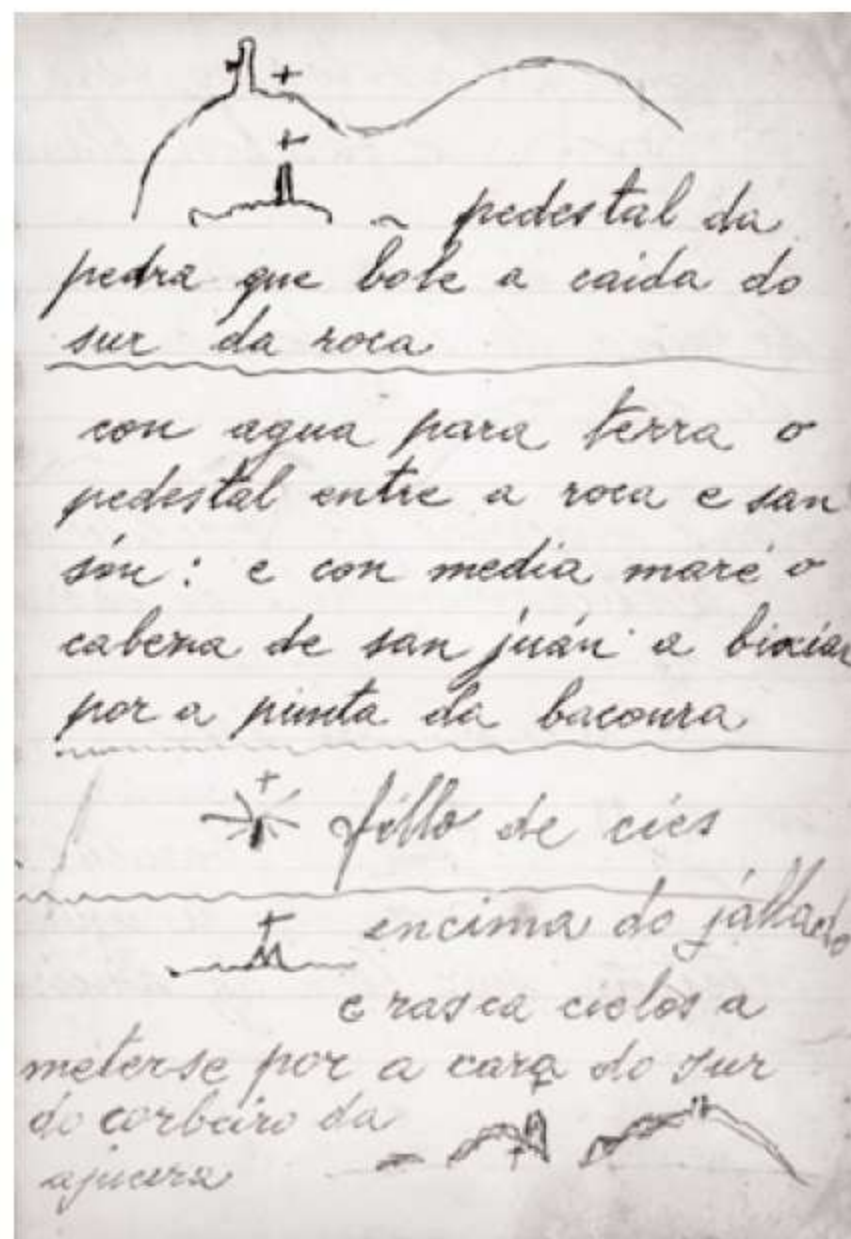 pedestal da
pedra que bole a caida do
sur da roca
con agua para terra o
pedestal entre a roca e san
sín: e con media maré o
cabeza de san juán a
por a punta da bacoura
fillo de cíes
encima do
e rasca cielos a
meterse por a cara do sur
do corbeiro da